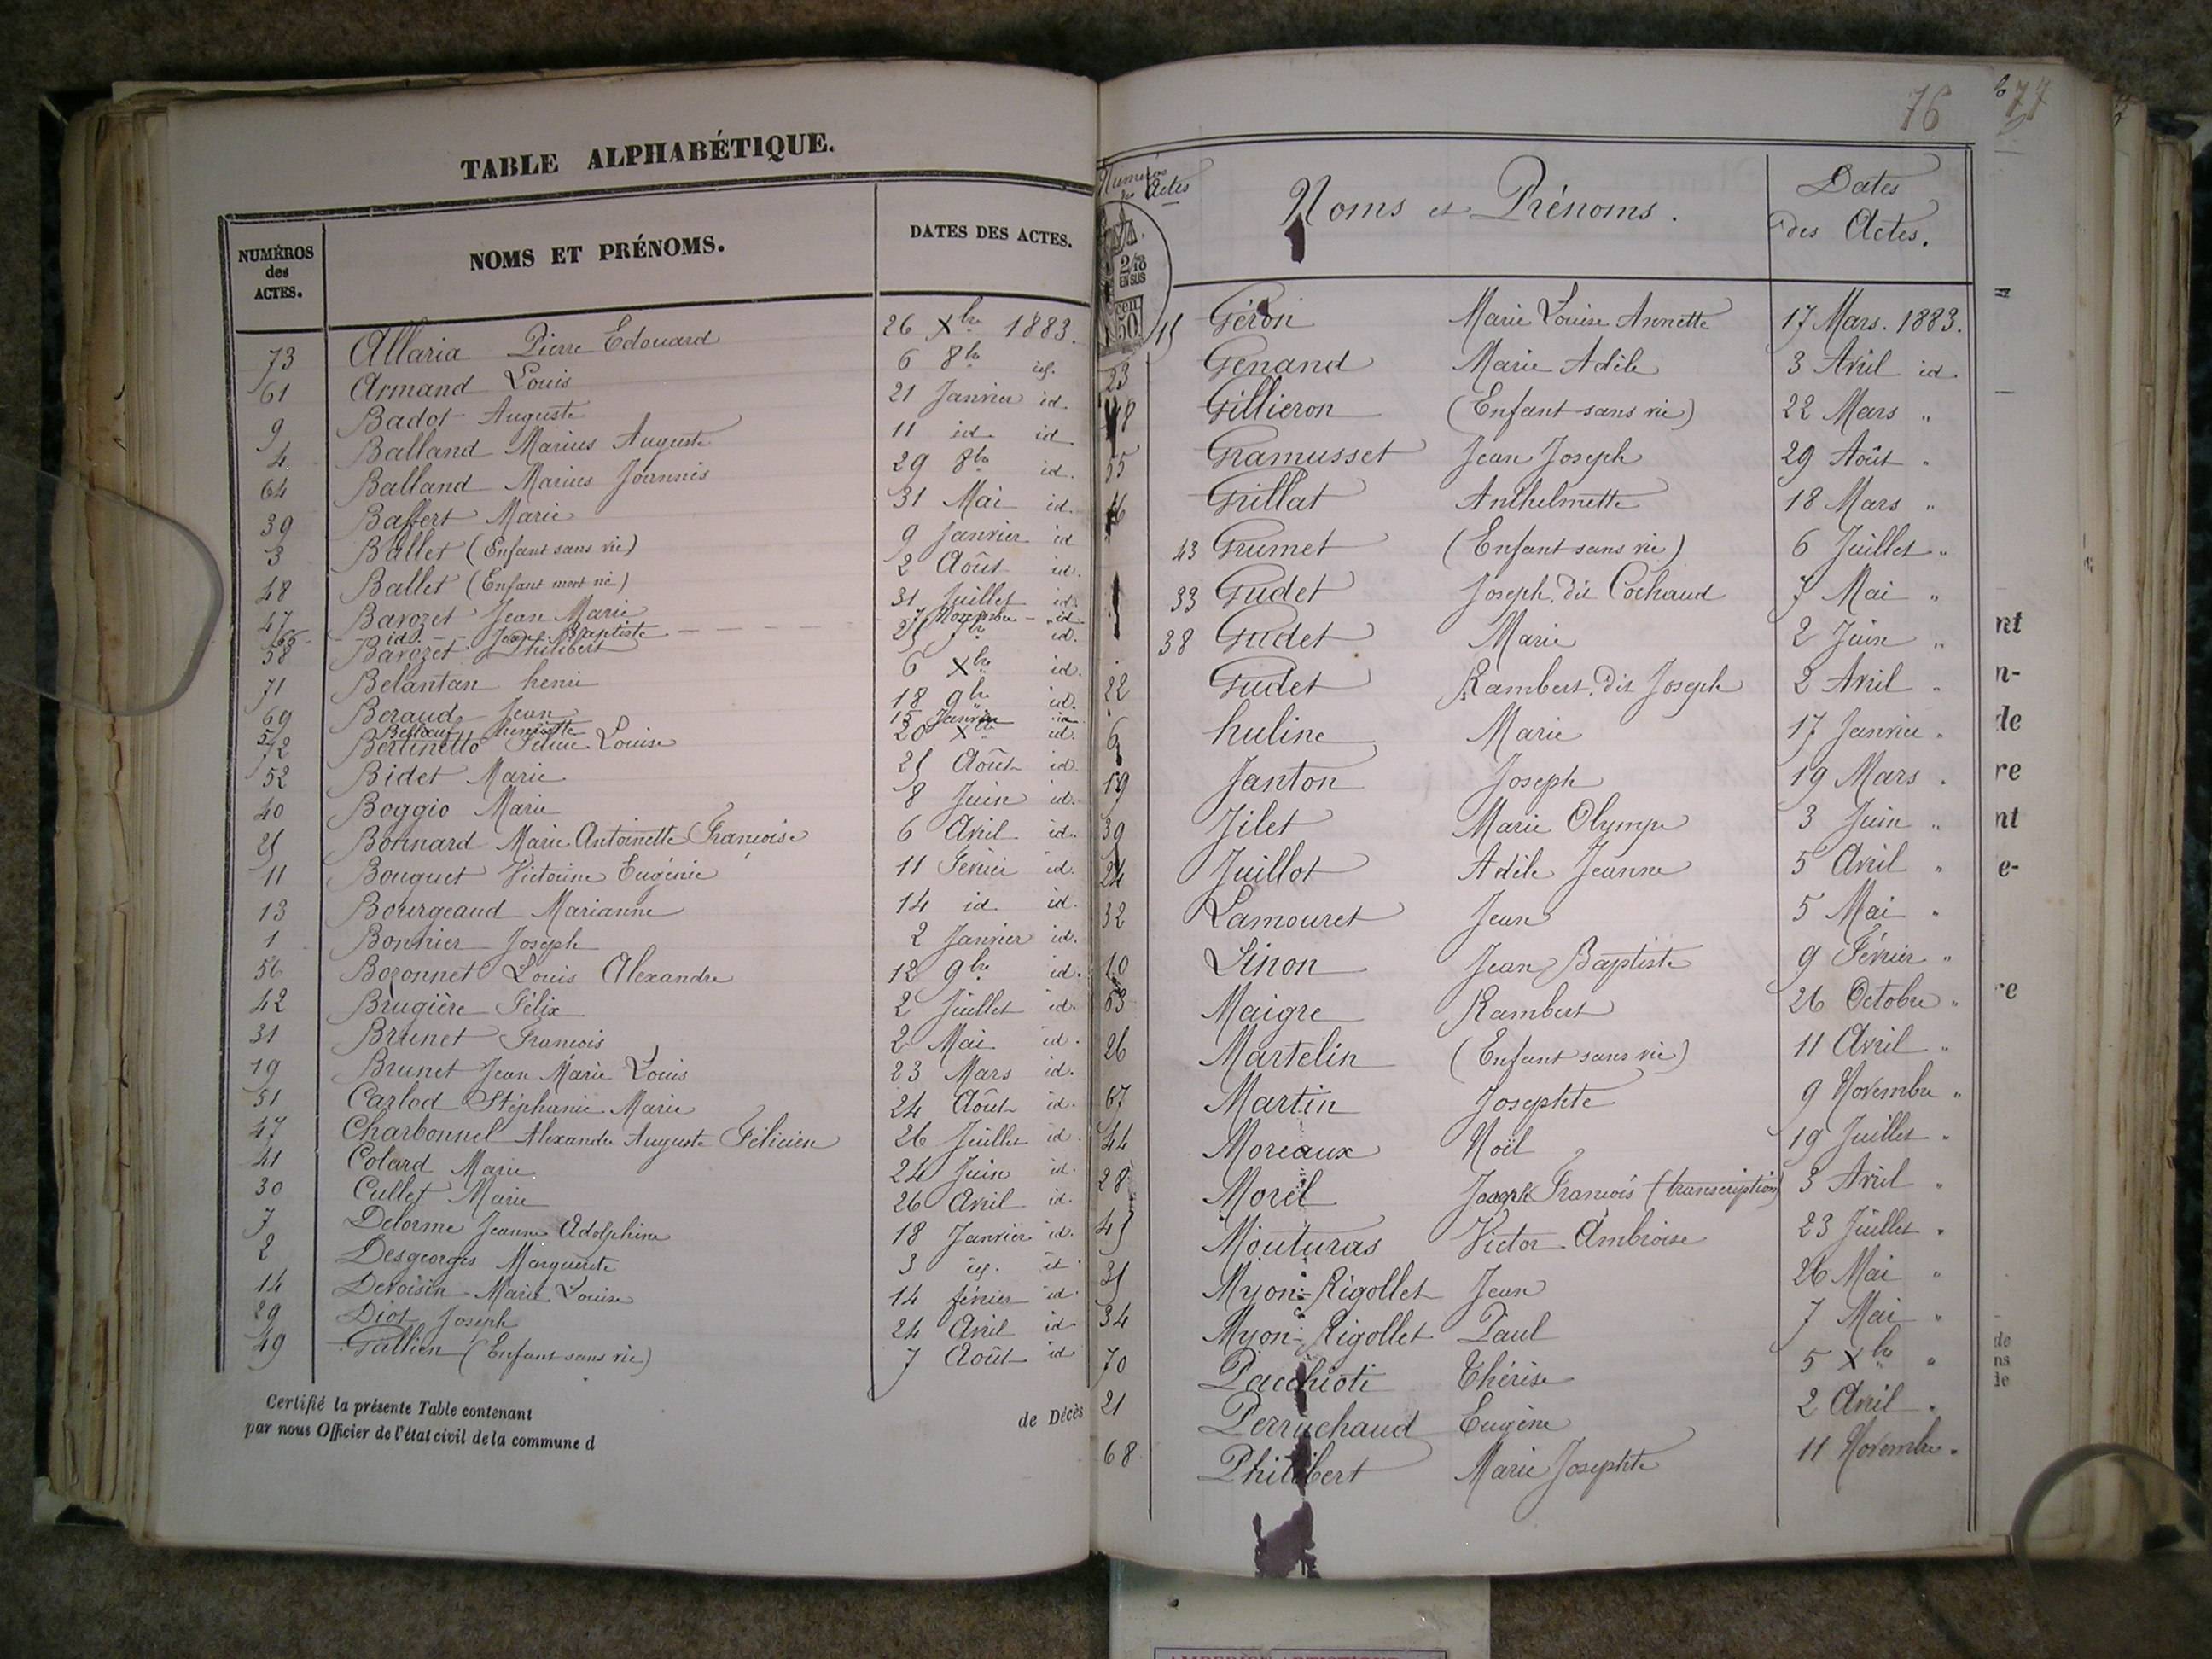 TABLE ALPHABÉTIQUE.
NUMÉROS
des
ACTES.
NOMS ET PRÉNOMS.
DATES DES ACTES.
73 Allaria Pierre Edouard 26 Xbre 1883.
61 Armand Louis 6 8bre id.
9 Badot Auguste 21 Janvier id
4 Balland Marius Auguste 11 id id
64 Balland Marius Joannis 29 8bre id.
39 Baffert Marie 31 Mai id.
3 Ballet (Enfant sans vie) 9 Janvier id
48 Ballet (Enfant mort né) 2 Août id.
47 Bavozet Jean Marie 31 Juillet id.
66 id. Jean Baptiste 7 Novembre id
58 Bavozet Philibert id.
71 Belantan henri 6 Xbre id.
69 Beraud Jean 18 9bre id.
5 henriette 15 Janvier id
72 Bertinetto Félicie Louise 20 Xbre id.
52 Bidet Marie 25 Août id.
40 Boggio Marie 8 Juin id.
25 Bonnard Marie Antoinette Françoise 6 Avril id.
11 Bouquet Victorine Eugénie 11 Février id.
13 Bourgeaud Marianne 14 id id.
1 Bonnier Joseph 2 Janvier id.
56 Bozonnet Louis Alexandre 12 9bre id.
42 Brugière Félix 2 Juillet id.
31 Brunet François 2 Mai id.
19 Brunet Jean Marie Louis 23 Mars id.
51 Carlod Stéphanie Marie 24 Août id.
47 Charbonnel Alexandre Auguste Félicien 26 Juillet id
41 Colard Marie 24 Juin id.
30 Cullet Marie 26 Avril id.
7 Delorme Jeanne Adolphine 18 Janvier id.
2 Desgeorges Marguerite 3 id. id
14 Devoisin Marie Louise 14 février id.
29 Diot Joseph 24 Avril id
49 Gallien (Enfant sans vie) 7 Août id
Certifié la présente Table contenant de Décès
par nous Officier de l'état civil de la commune d
76
77
Numéros
des Actes
Noms et Prénoms.
Dates
des Actes.
2/10
EN SUS
50
15 Géron Marie Louise Annette 17 Mars. 1883.
23 Genand Marie Adèle 3 Avril id
18 Gillieron (Enfant sans vie) 22 Mars "
55 Gramusset Jean Joseph 29 Août "
16 Grillat Anthelmette 18 Mars "
43 Grumet (Enfant sans vie) 6 Juillet "
33 Gudet Joseph dit Cochaud 7 Mai "
38 Gudet Marie 2 Juin "
22 Gudet Rambert dit Joseph 2 Avril "
6 huline Marie 17 Janvier "
19 Janton Joseph 19 Mars "
39 Jilet Marie Olympe 3 Juin "
24 Juillot Adèle Jeanne 5 Avril "
32 Lamouret Jean 5 Mai "
10 Linon Jean Baptiste 9 Février "
63 Maigre Rambert 26 Octobre "
26 Martelin (Enfant sans vie) 11 Avril "
67 Martin Josephte 9 Novembre "
44 Moreaux Noël 19 Juillet "
28 Morel Joseph François (transcription) 3 Avril "
45 Mouturas Victor Ambroise 23 Juillet "
Myon-Rigollet Jean 26 Mai "
34 Myon-Rigollet Paul 7 Mai "
70 Pacchioti Thérèse 5 Xbre "
21 Perruchaud Eugène 2 Avril "
68 Philibert Marie Josephte 11 Novembre "
nt
n-
de
re
nt
e-
re
de
ns
de